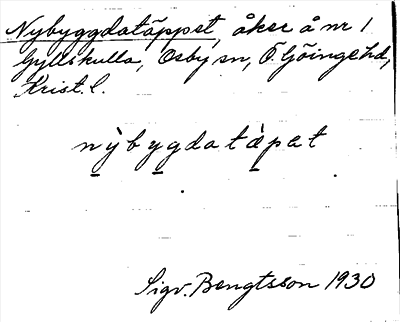 Nybyggdatäppet, åker å nr 1
Gyllskulla, Osby sn, Ö. Göinge hd,
Krist. l.
nỳbygdatàpat
Sigv. Bengtsson 1930